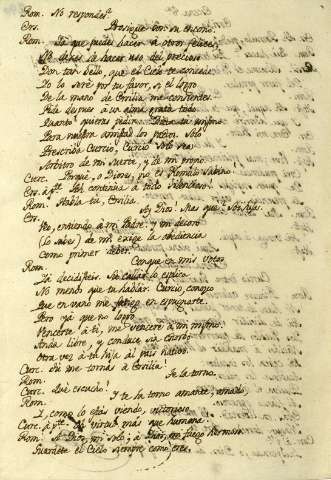 Rom. No respondes?
Ers. Prosigue con su encono.
Rom. Tu que puedes hacer a otros felices,
de hacer uso del precioso
Don tan bello, que el Cielo te concede.
Yo lo seré por tu favor, si el logro
De la mano de Ersilia me concedes.
Pide despues à un alma grata todo
Quanto quieras pedir: Dicta tu mismo
Para nuestra amistad los pactos. Solo
Prescriva Curcio, Curcio solo sea
Arbitro de mi suerte, y de mi trono.
Curc. Porque, o Dioses, no es Romulo Sabino
Ers. à pte.
Rom. Habla tu, Ersilia.
Ers. Ay Dios! Mas que? Soy hija.
Veo, entiendo à mi Padre: y mi decoro
(lo sabes) de mi exige la obediencia
Como primer deber.
Rom. Conque en mis votos
Ya decidisteis. Su callar lo esplica
No menos que tu hablar. Curcio, conozco
Que en vano me fatigo en expugnarte.
Pero ya que no logro
Vencerte à ti, me venceré à mi mismo.
Anda libre, y conduce sin estorbo
Otra vez à tu hija al pais nativo.
Curc. Tu me tornas à Ersilia!
Rom. Te la torno.
Curc. Qué escucho! Y te la torno amante, amado,
Rom. Y, como lo estás viendo, victorioso.
Curc. à pte. Virtud mas que humana!
Rom. A Dios, mi solo, à Dios, mi fuego hermoso.
Guardete el Cielo siempre como eres,